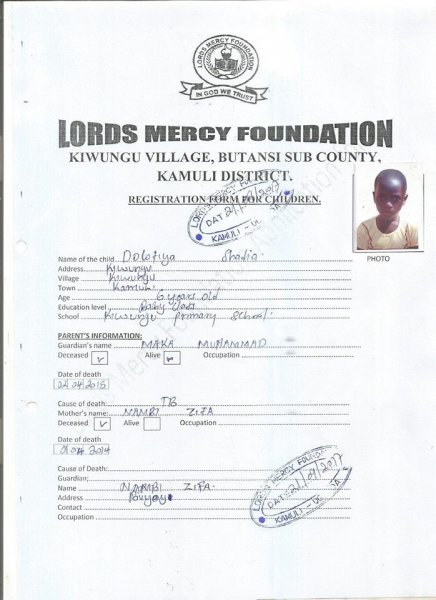 LORDS MERCY FOUNDATION
IN GOD WE TRUST
LORDS MERCY FOUNDATION
KIWUNGU VILLAGE, BUTANSI SUB COUNTY,
KAMULI DISTRICT.
REGISTRATION FORM FOR CHILDREN.
PHOTO
Name of the child Dolofiya Shadia
Address Kiwungu
Village Kiwungu
Town Kamuli
Age 6 years old
Education level Baby class
School Kiwungu primary school.
PARENT'S INFORMATION:
Guardian's name MAKA MUHAMMAD
Deceased Alive Occupation
Date of death
Cause of death: TB
Mother's name: NAMBI ZIFA
Deceased Alive Occupation
Date of death
Cause of Death:
Guardian;
Name NAMBI ZIFA.
Address
Contact
Occupation
LORDS MERCY FOUND
DATE:
KAMULI - UG